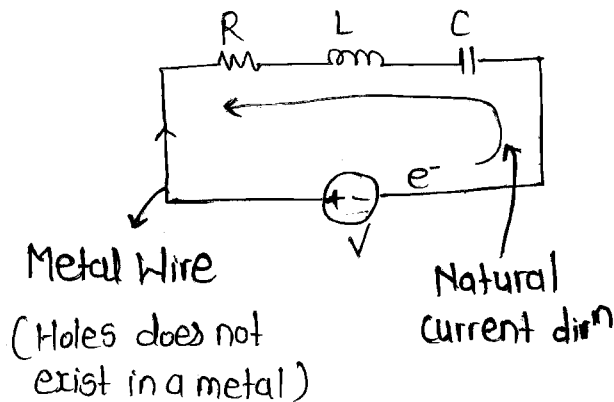 R L C
e⁻
+ -
V
Metal Wire
(Holes does not
exist in a metal)
Natural
current dirⁿ